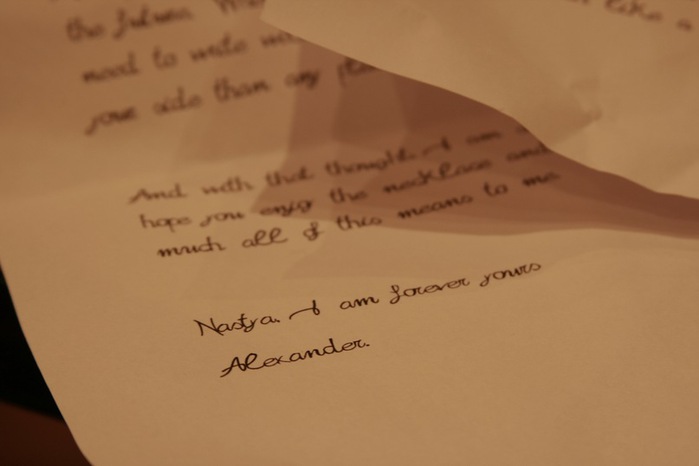 like a
the future.
need to write
your side than any
And with that thought I am
hope you enjoy the necklace and
much all of this means to me
Nastya. I am forever yours
Alexander.